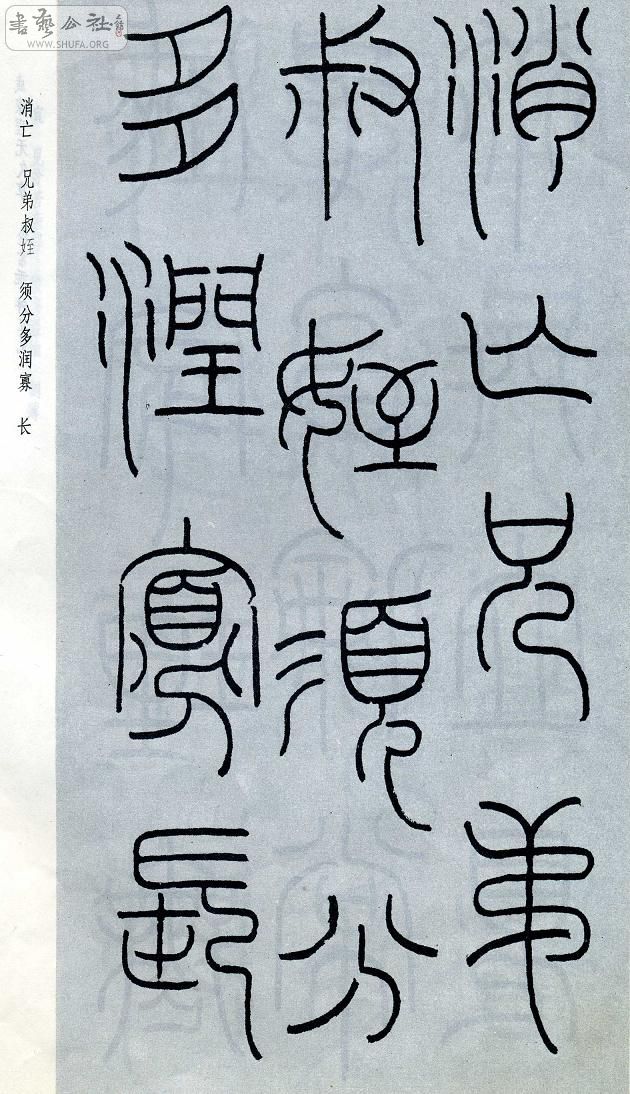 書藝公社
WWW.SHUFA.ORG
消亾兄弟
叔姪須分
多潤寡長
消亡 兄弟叔姪 须分多润寡 长